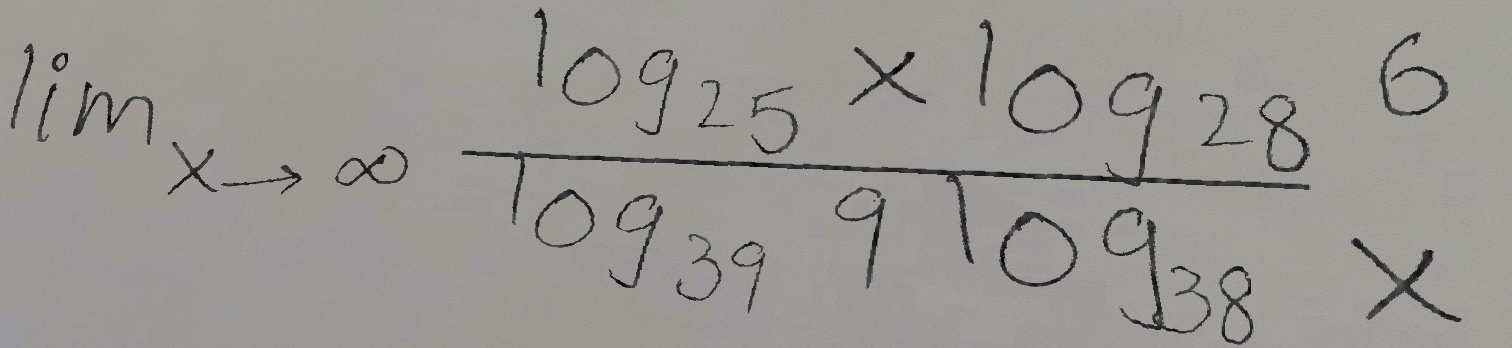 lim x→∞ log₂₅ x log₂₈ 6
log₃₉ 9 log₃₈ x